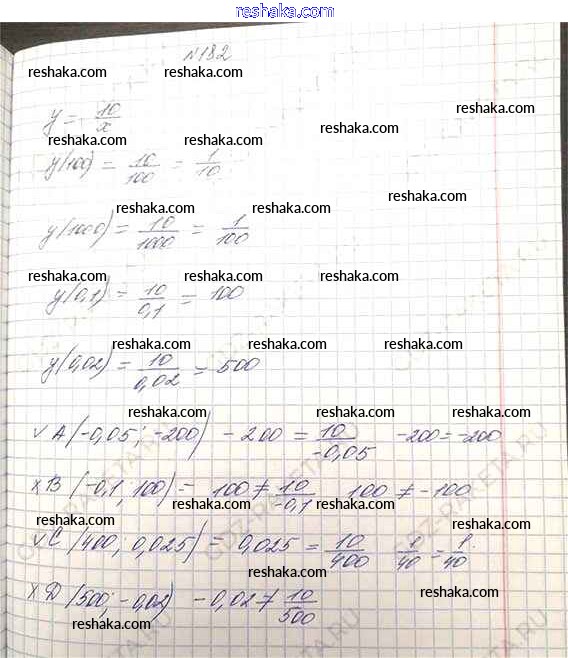 reshaka.com
№182
reshaka.com reshaka.com
y = 10/x
reshaka.com
reshaka.com reshaka.com reshaka.com
y(100) = 10/100 = 1/10
reshaka.com
reshaka.com reshaka.com
y(1000) = 10/1000 = 1/100
reshaka.com reshaka.com reshaka.com
y(0,1) = 10/0,1 = 100
reshaka.com reshaka.com reshaka.com
y(0,02) = 10/0,02 = 500
reshaka.com reshaka.com reshaka.com
√A(-0,05; -200) -200 = 10/-0,05 -200 = -200
reshaka.com reshaka.com reshaka.com
×B(-0,1; 100) = 100 ≠ 10/-0,1 100 ≠ -100
reshaka.com reshaka.com reshaka.com
√C(400; 0,025) = 0,025 = 10/400 1/40 = 1/40
reshaka.com
×D(500; -0,02) -0,02 ≠ 10/500
reshaka.com
reshaka.com
reshaka.com